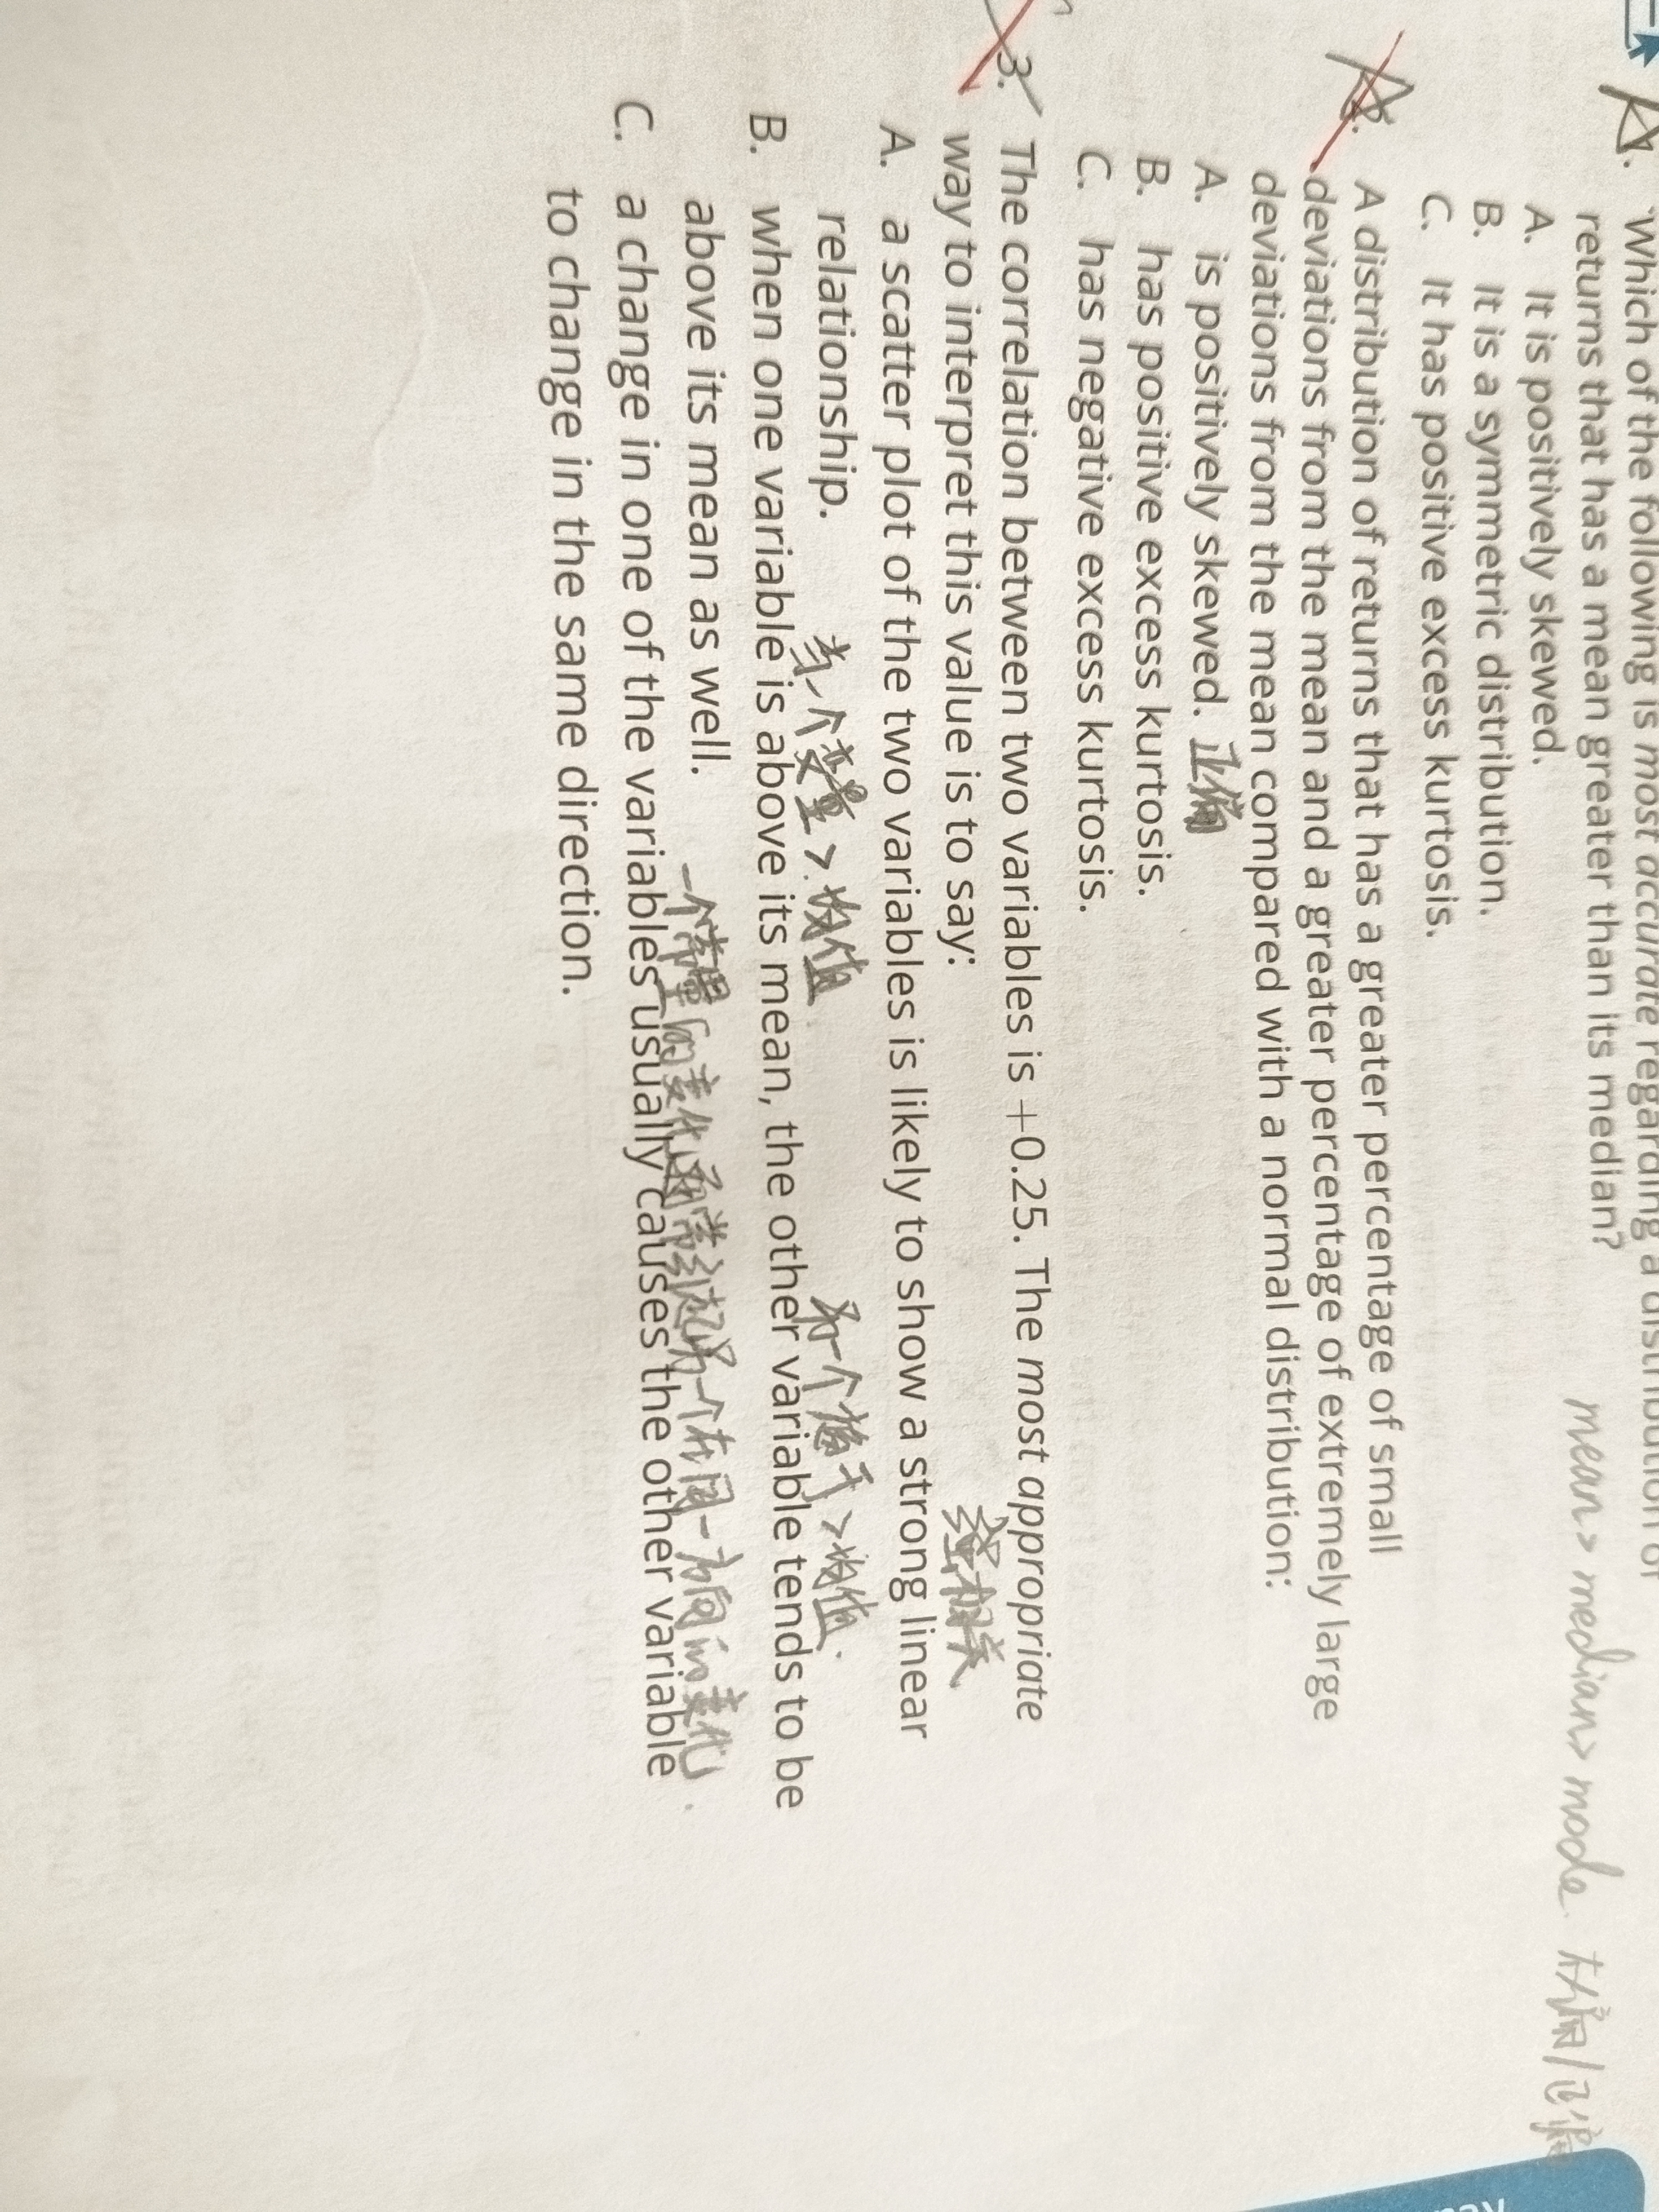 1. Which of the following is most accurate regarding a distribution of
returns that has a mean greater than its median?
mean > median > mode. 右偏/正偏
A. It is positively skewed.
B. It is a symmetric distribution.
C. It has positive excess kurtosis.
A distribution of returns that has a greater percentage of small
deviations from the mean and a greater percentage of extremely large
deviations from the mean compared with a normal distribution:
A. is positively skewed. 正偏
B. has positive excess kurtosis.
C. has negative excess kurtosis.
3. The correlation between two variables is +0.25. The most appropriate
way to interpret this value is to say:
A. a scatter plot of the two variables is likely to show a strong linear
relationship.
当一个变量>均值 另一个趋于>均值.
B. when one variable is above its mean, the other variable tends to be
above its mean as well.
一个变量的变化通常引起另一个在同一方向的变化.
C. a change in one of the variables usually causes the other variable
to change in the same direction.